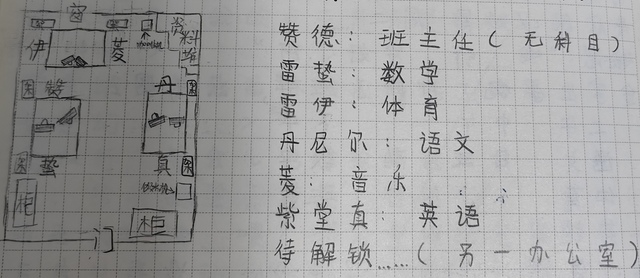 窗
资
料
堆
伊
菱
赞
丹
蛰
真
柜
柜
门
赞德：班主任（无科目）
雷蛰：数学
雷伊：体育
丹尼尔：语文
菱：音乐
紫堂真：英语
待解锁……（另一办公室）